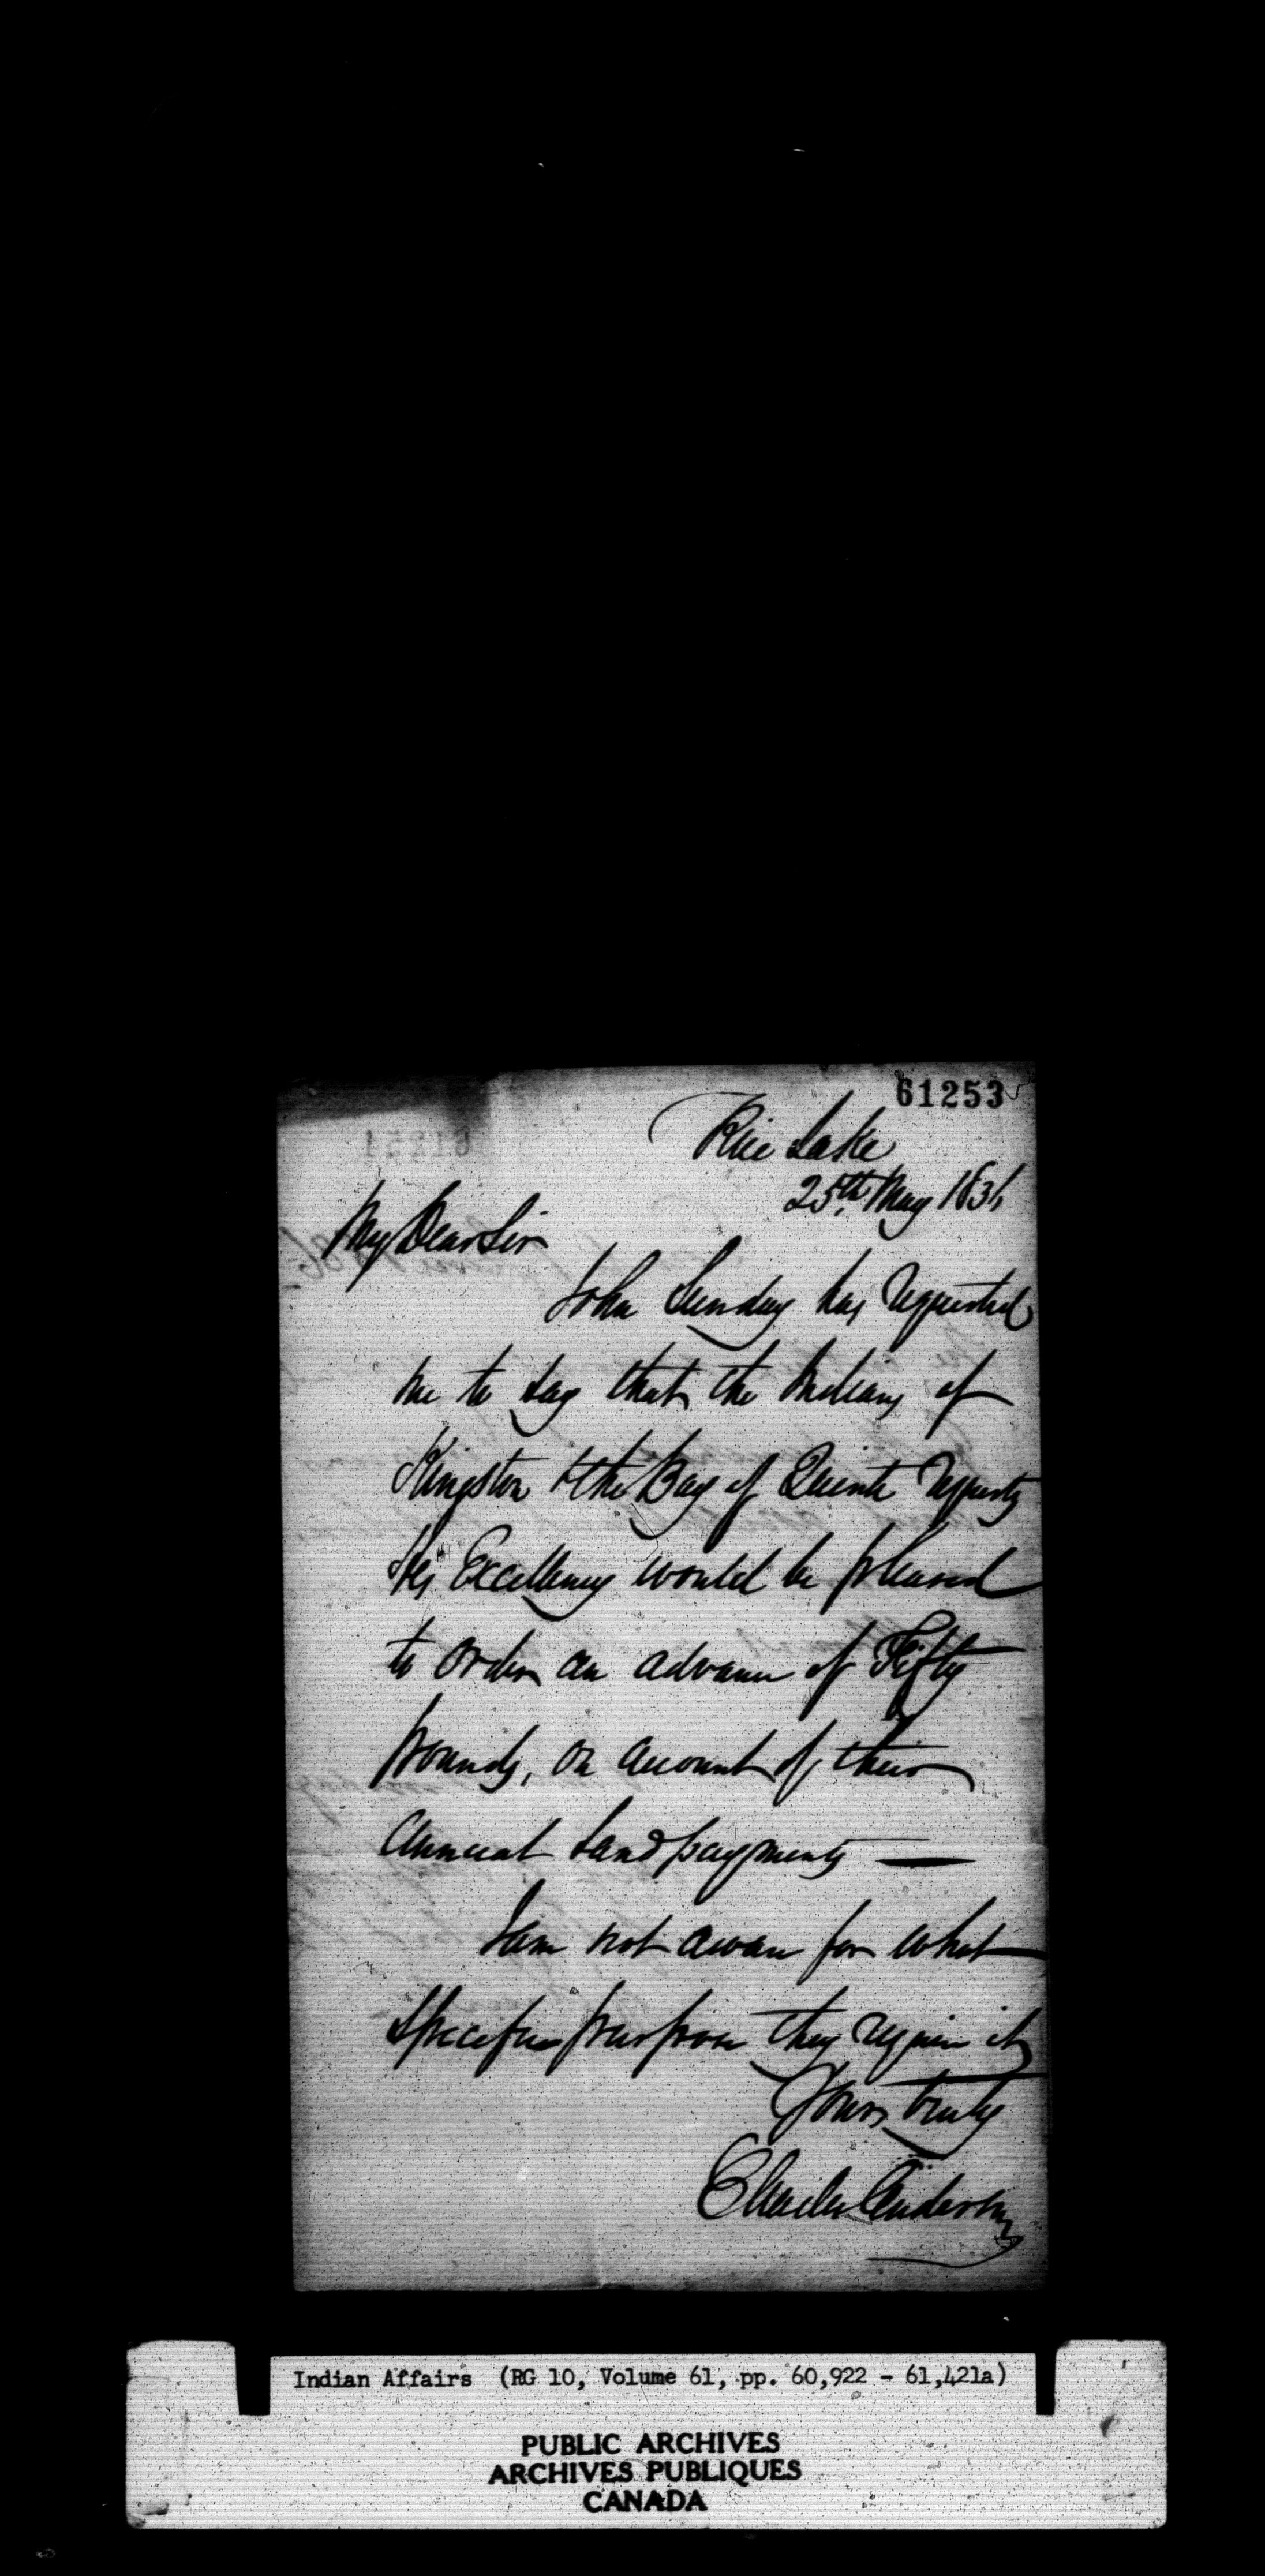 61253
Rice Lake
25th May 1836
My Dear Sir
John Sunday has requested
me to say that the Indians of
Kingston & the Bay of Quinte request
His Excellency would be pleased
to order an advance of Fifty
pounds, on account of their
annual Land payments —
I am not aware for what
specific purpose they require it
Yours truly
Charles Anderson
Indian Affairs (RG 10, Volume 61, pp. 60,922 - 61,421a)
PUBLIC ARCHIVES
ARCHIVES PUBLIQUES
CANADA